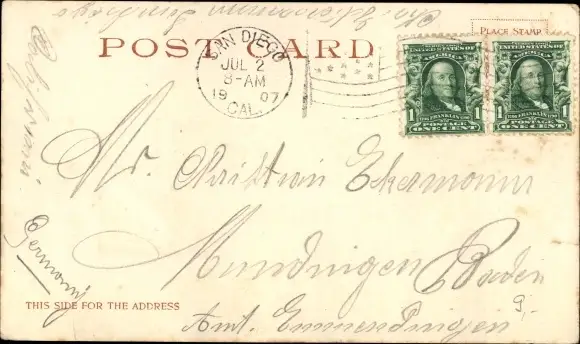 POST CARD
PLACE STAMP
SAN DIEGO
JUL 2
8-AM
1907
CAL.
UNITED STATES OF
AMERICA
FRANKLIN
1 POSTAGE 1
ONE CENT
UNITED STATES OF
AMERICA
FRANKLIN
1 POSTAGE 1
ONE CENT
Mr. Christian Ekermann
Mundingen Baden
Amt. Emmendingen
9.
Germany
THIS SIDE FOR THE ADDRESS